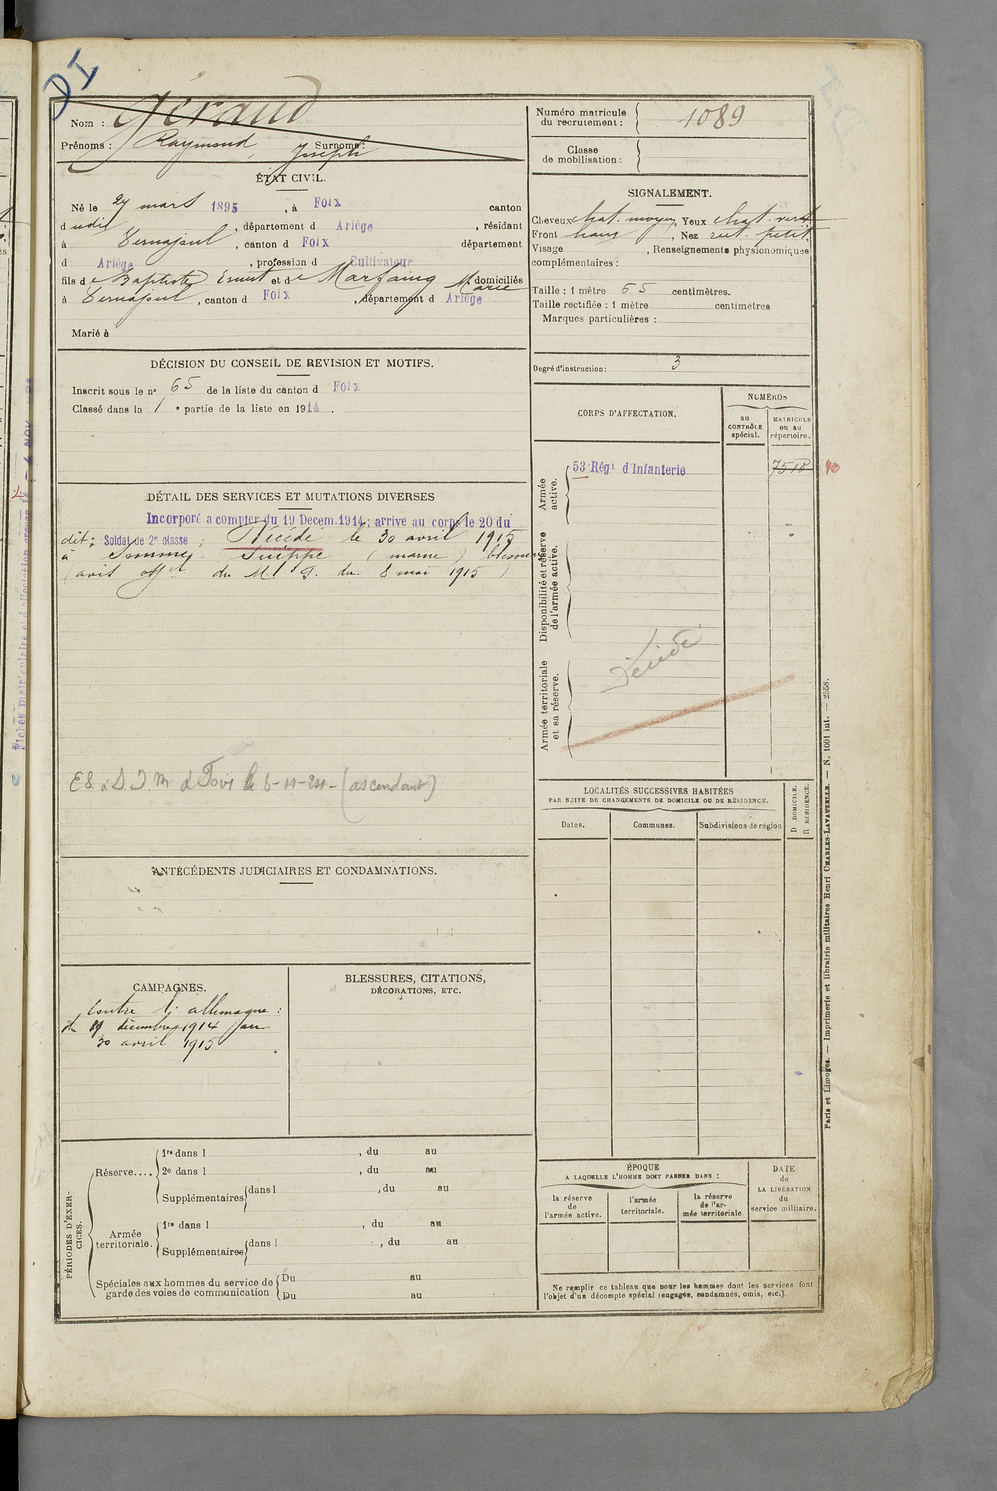 DI
Nom : Géraud
Prénoms : Raymond, Joseph Surnoms :
ÉTAT CIVIL.
Né le 27 mars 1895, à Foix canton
dudit, département d Ariège, résidant
à Vernajoul, canton d Foix département
d Ariège, profession d Cultivateur
fils de Baptiste Ernest et de Marfaing Marie domiciliés
à Vernajoul, canton d Foix, département d Ariège
Marié à
DÉCISION DU CONSEIL DE REVISION ET MOTIFS.
Inscrit sous le n° 65 de la liste du canton d Foix
Classé dans la 1 e partie de la liste en 1914.
DÉTAIL DES SERVICES ET MUTATIONS DIVERSES
Incorporé à compter du 19 Décem. 1914; arrivé au corps le 20 du
dit; Soldat de 2e classe; Décédé le 30 avril 1915
à Somme-Suippe (marne) blessures
(avis offel du M. G. du 8 mai 1915)
(ascendant)
ANTÉCÉDENTS JUDICIAIRES ET CONDAMNATIONS.
CAMPAGNES.
Contre l'allemagne :
du 19 décembre 1914 au
30 avril 1915
BLESSURES, CITATIONS,
DÉCORATIONS, ETC.
PÉRIODES D'EXERCICES.
Réserve....
1re dans l , du au
2e dans l , du au
Supplémentaires dans l , du au
Armée territoriale.
1re dans l , du au
Supplémentaires dans l , du au
Spéciales aux hommes du service de garde des voies de communication
Du au
Du au
Numéro matricule du recrutement : 1089
Classe de mobilisation :
SIGNALEMENT.
Cheveux chat. moyen, Yeux chat. vert
Front haut, Nez rect. petit
Visage , Renseignements physionomiques
complémentaires :
Taille : 1 mètre 65 centimètres.
Taille rectifiée : 1 mètre centimètres
Marques particulières :
Degré d'instruction : 3
CORPS D'AFFECTATION.
NUMÉROS
au CONTRÔLE spécial.
MATRICULE ou au répertoire.
Armée active.
53 Régt d'Infanterie
7510
Disponibilité et réserve de l'armée active.
Armée territoriale et sa réserve.
Décédé
LOCALITÉS SUCCESSIVES HABITÉES
PAR SUITE DE CHANGEMENTS DE DOMICILE OU DE RÉSIDENCE.
D DOMICILE.
R RÉSIDENCE.
Dates. Communes. Subdivisions de région
ÉPOQUE
A LAQUELLE L'HOMME DOIT PASSER DANS :
la réserve de l'armée active.
l'armée territoriale.
la réserve de l'armée territoriale
DATE de LA LIBÉRATION du service militaire.
Ne remplir ce tableau que pour les hommes dont les services font
l'objet d'un décompte spécial (engagés, condamnés, omis, etc.).
Paris et Limoges. — Imprimerie et librairie militaires Henri CHARLES-LAVAUZELLE. — N. 1001 int. — 2558.